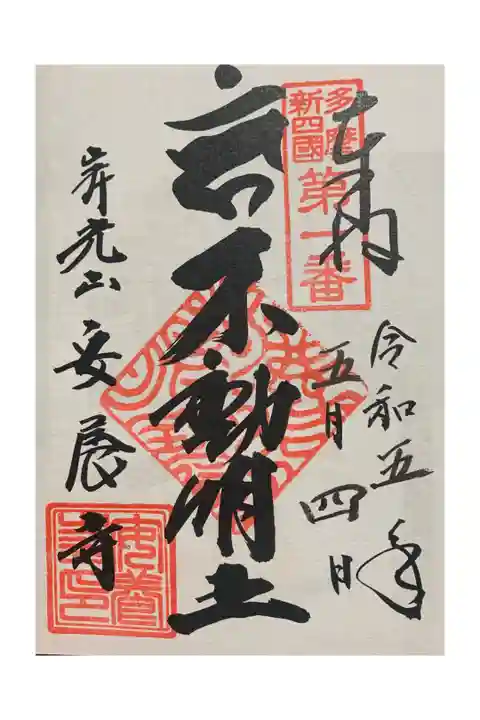 奉拝
多摩
新四國
第一番
令和五年
五月四日
不動明王
光山安養寺